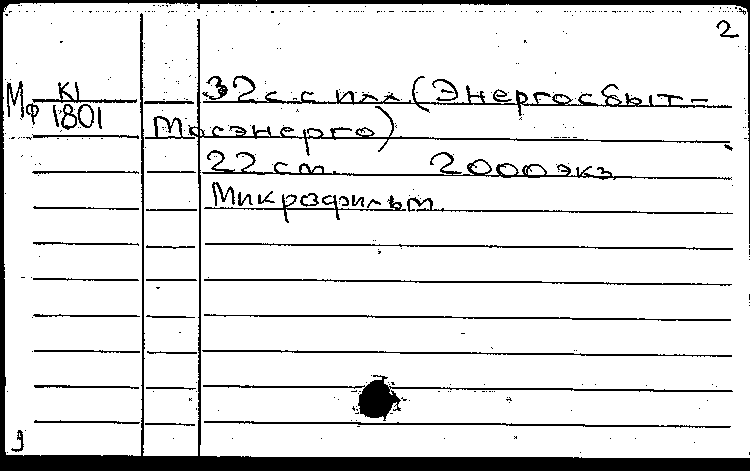 2
Мф К1
1801
32 с. с илл (Энергосбыт-
Мосэнерго)
22 см. 2000 экз
Микрофильм.